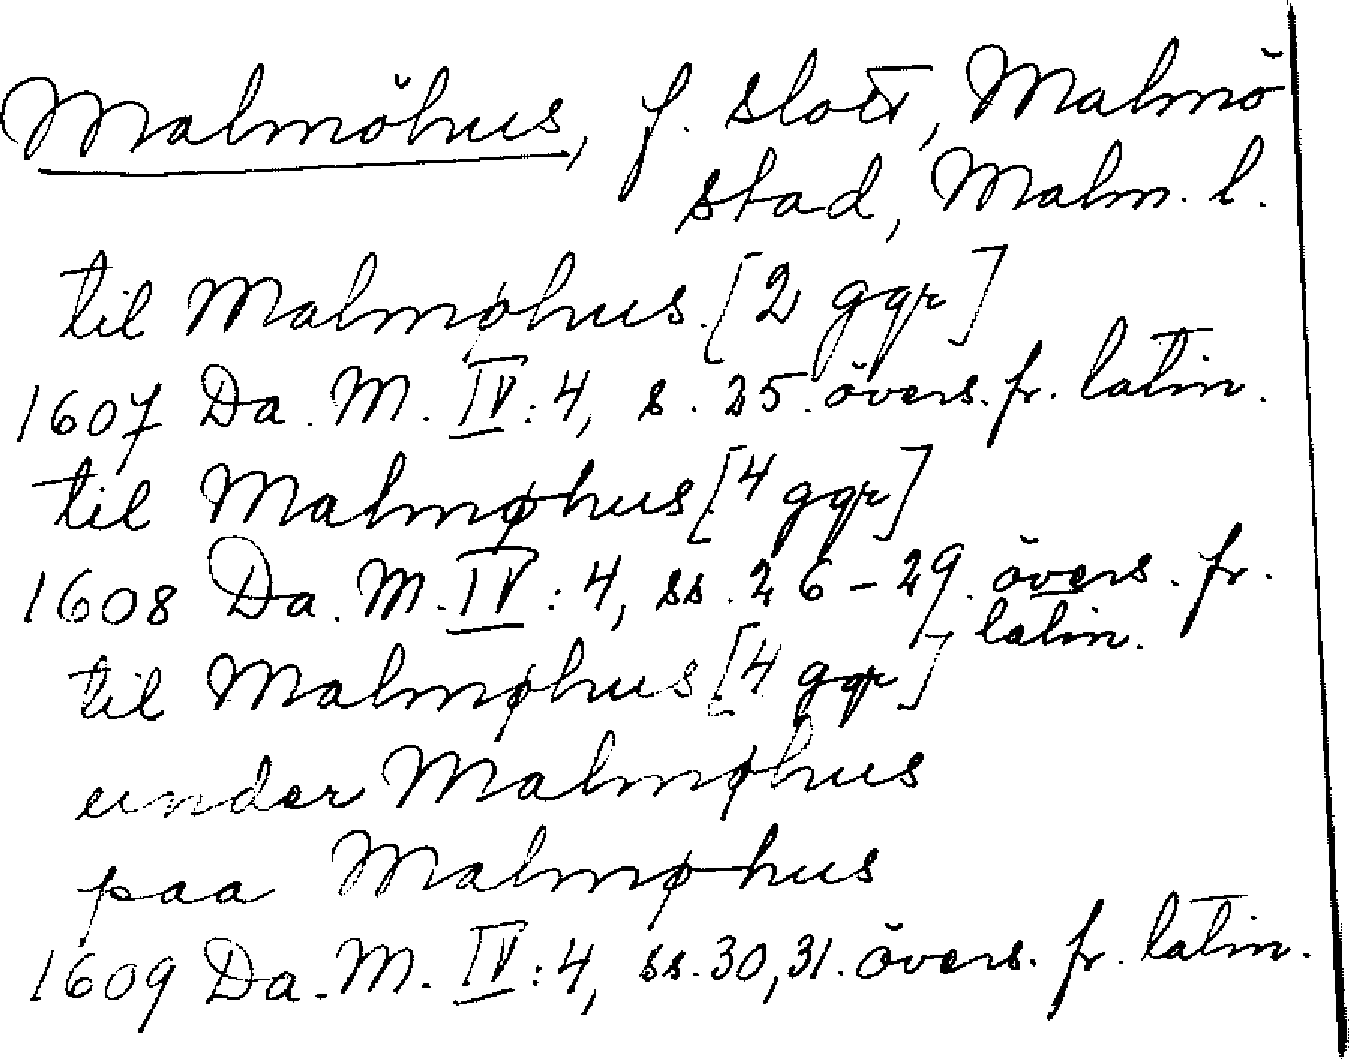 Malmöhus, f. slott, Malmö
stad, Malm. l.
til Malmøhus. [2 ggr]
1607 Da. M. IV: 4, s. 25. övers. fr. latin.
til Malmøhus [4 ggr]
1608 Da. M. IV: 4, ss. 26-29. övers. fr.
latin.
til Malmøhus [4 ggr]
under Malmøhus
paa Malmøhus
1609 Da. M. IV: 4, ss. 30, 31. övers. fr. latin.